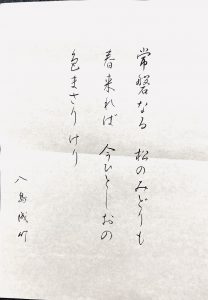 常磐なる 松のみどりも
春来れば 今ひとしおの
色まさりけり
八島成町